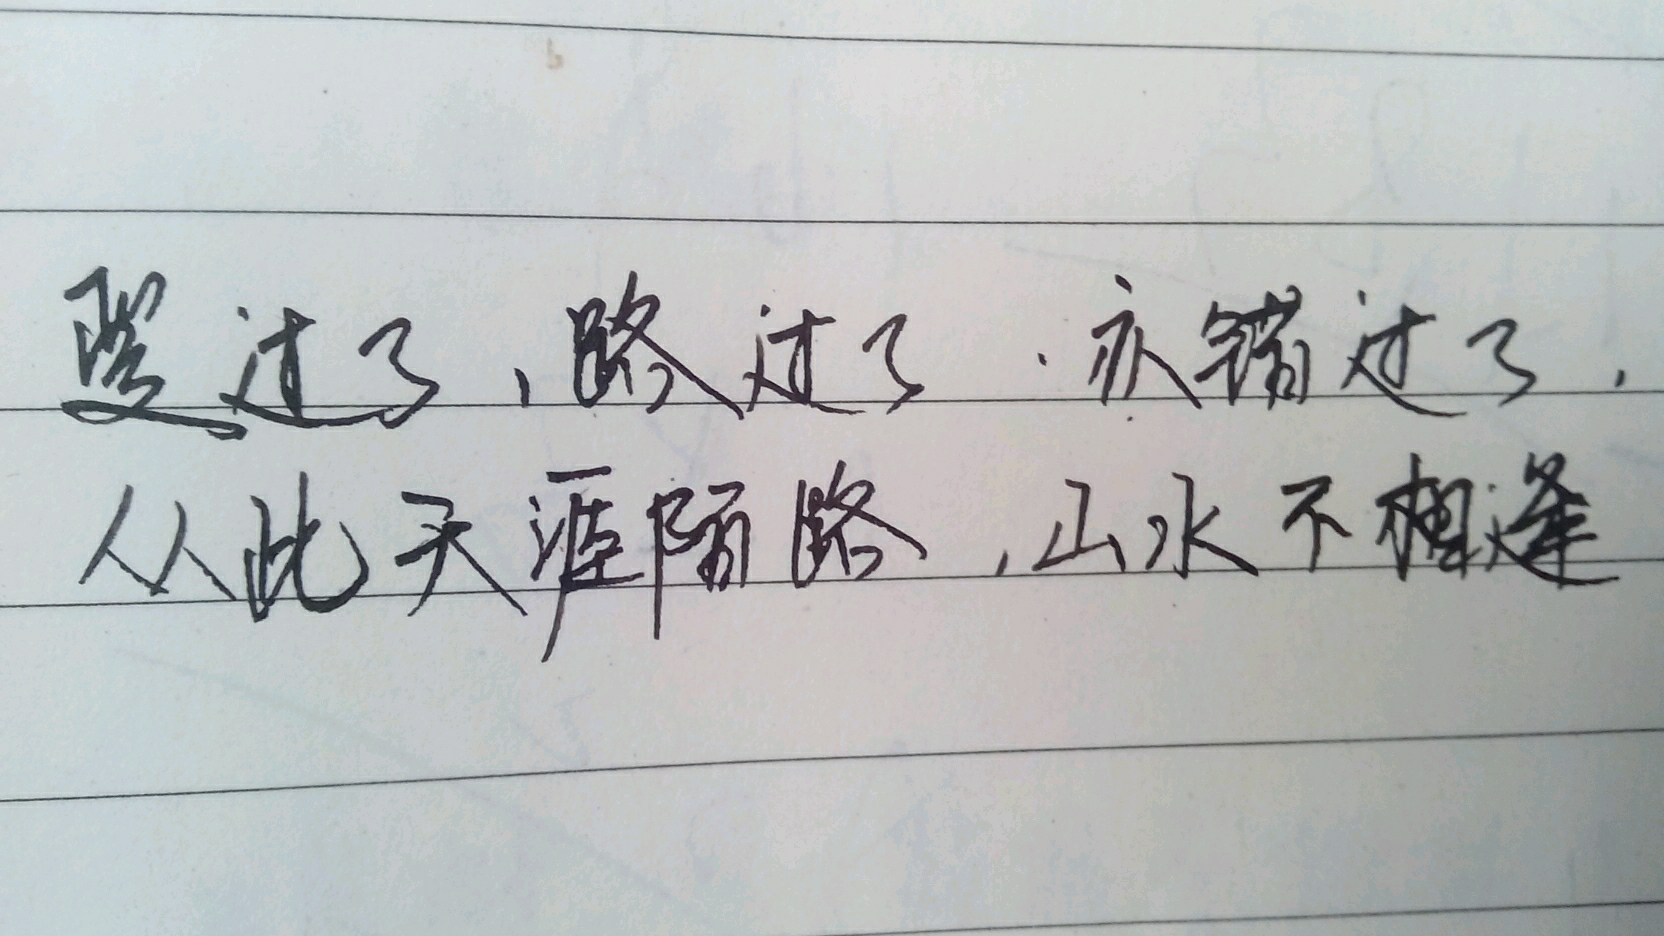 爱过了，路过了，亦错过了，
从此天涯陌路，山水不相逢